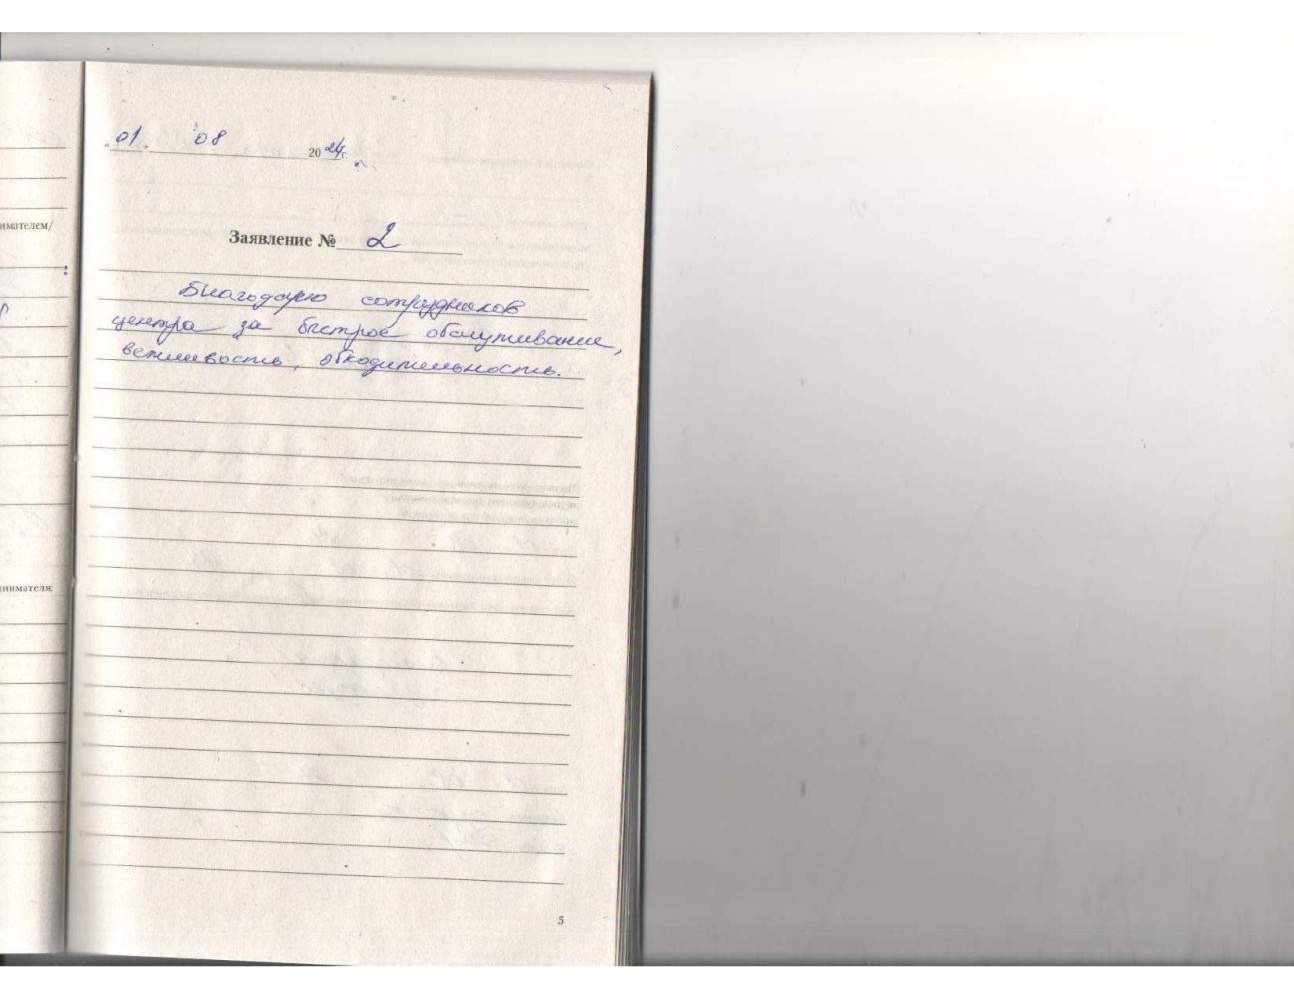 01. 08 2024г.
имателем/
Заявление № 2
Благодарю сотрудников
центра за быстрое обслуживание,
вежливость, обходительность.
инимателя:
5